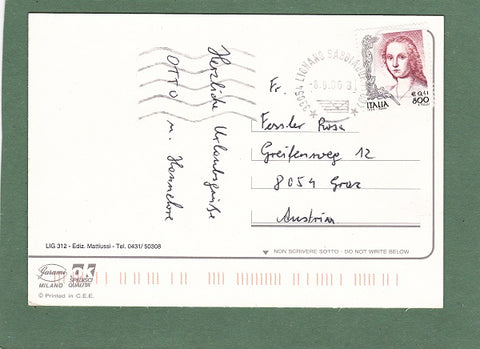 Herzliche Urlaubsgrüße
OTTO u. Hannelore
33054 LIGNANO SABBIADORO
ITALIA
800
Fr.
Fessler Rosa
Greifenweg 12
8054 Graz
Austria
LIG 312 - Ediz. Mattiussi - Tel. 0431/50308
NON SCRIVERE SOTTO - DO NOT WRITE BELOW
Garami
MILANO
QUALITÀ
© Printed in C.E.E.